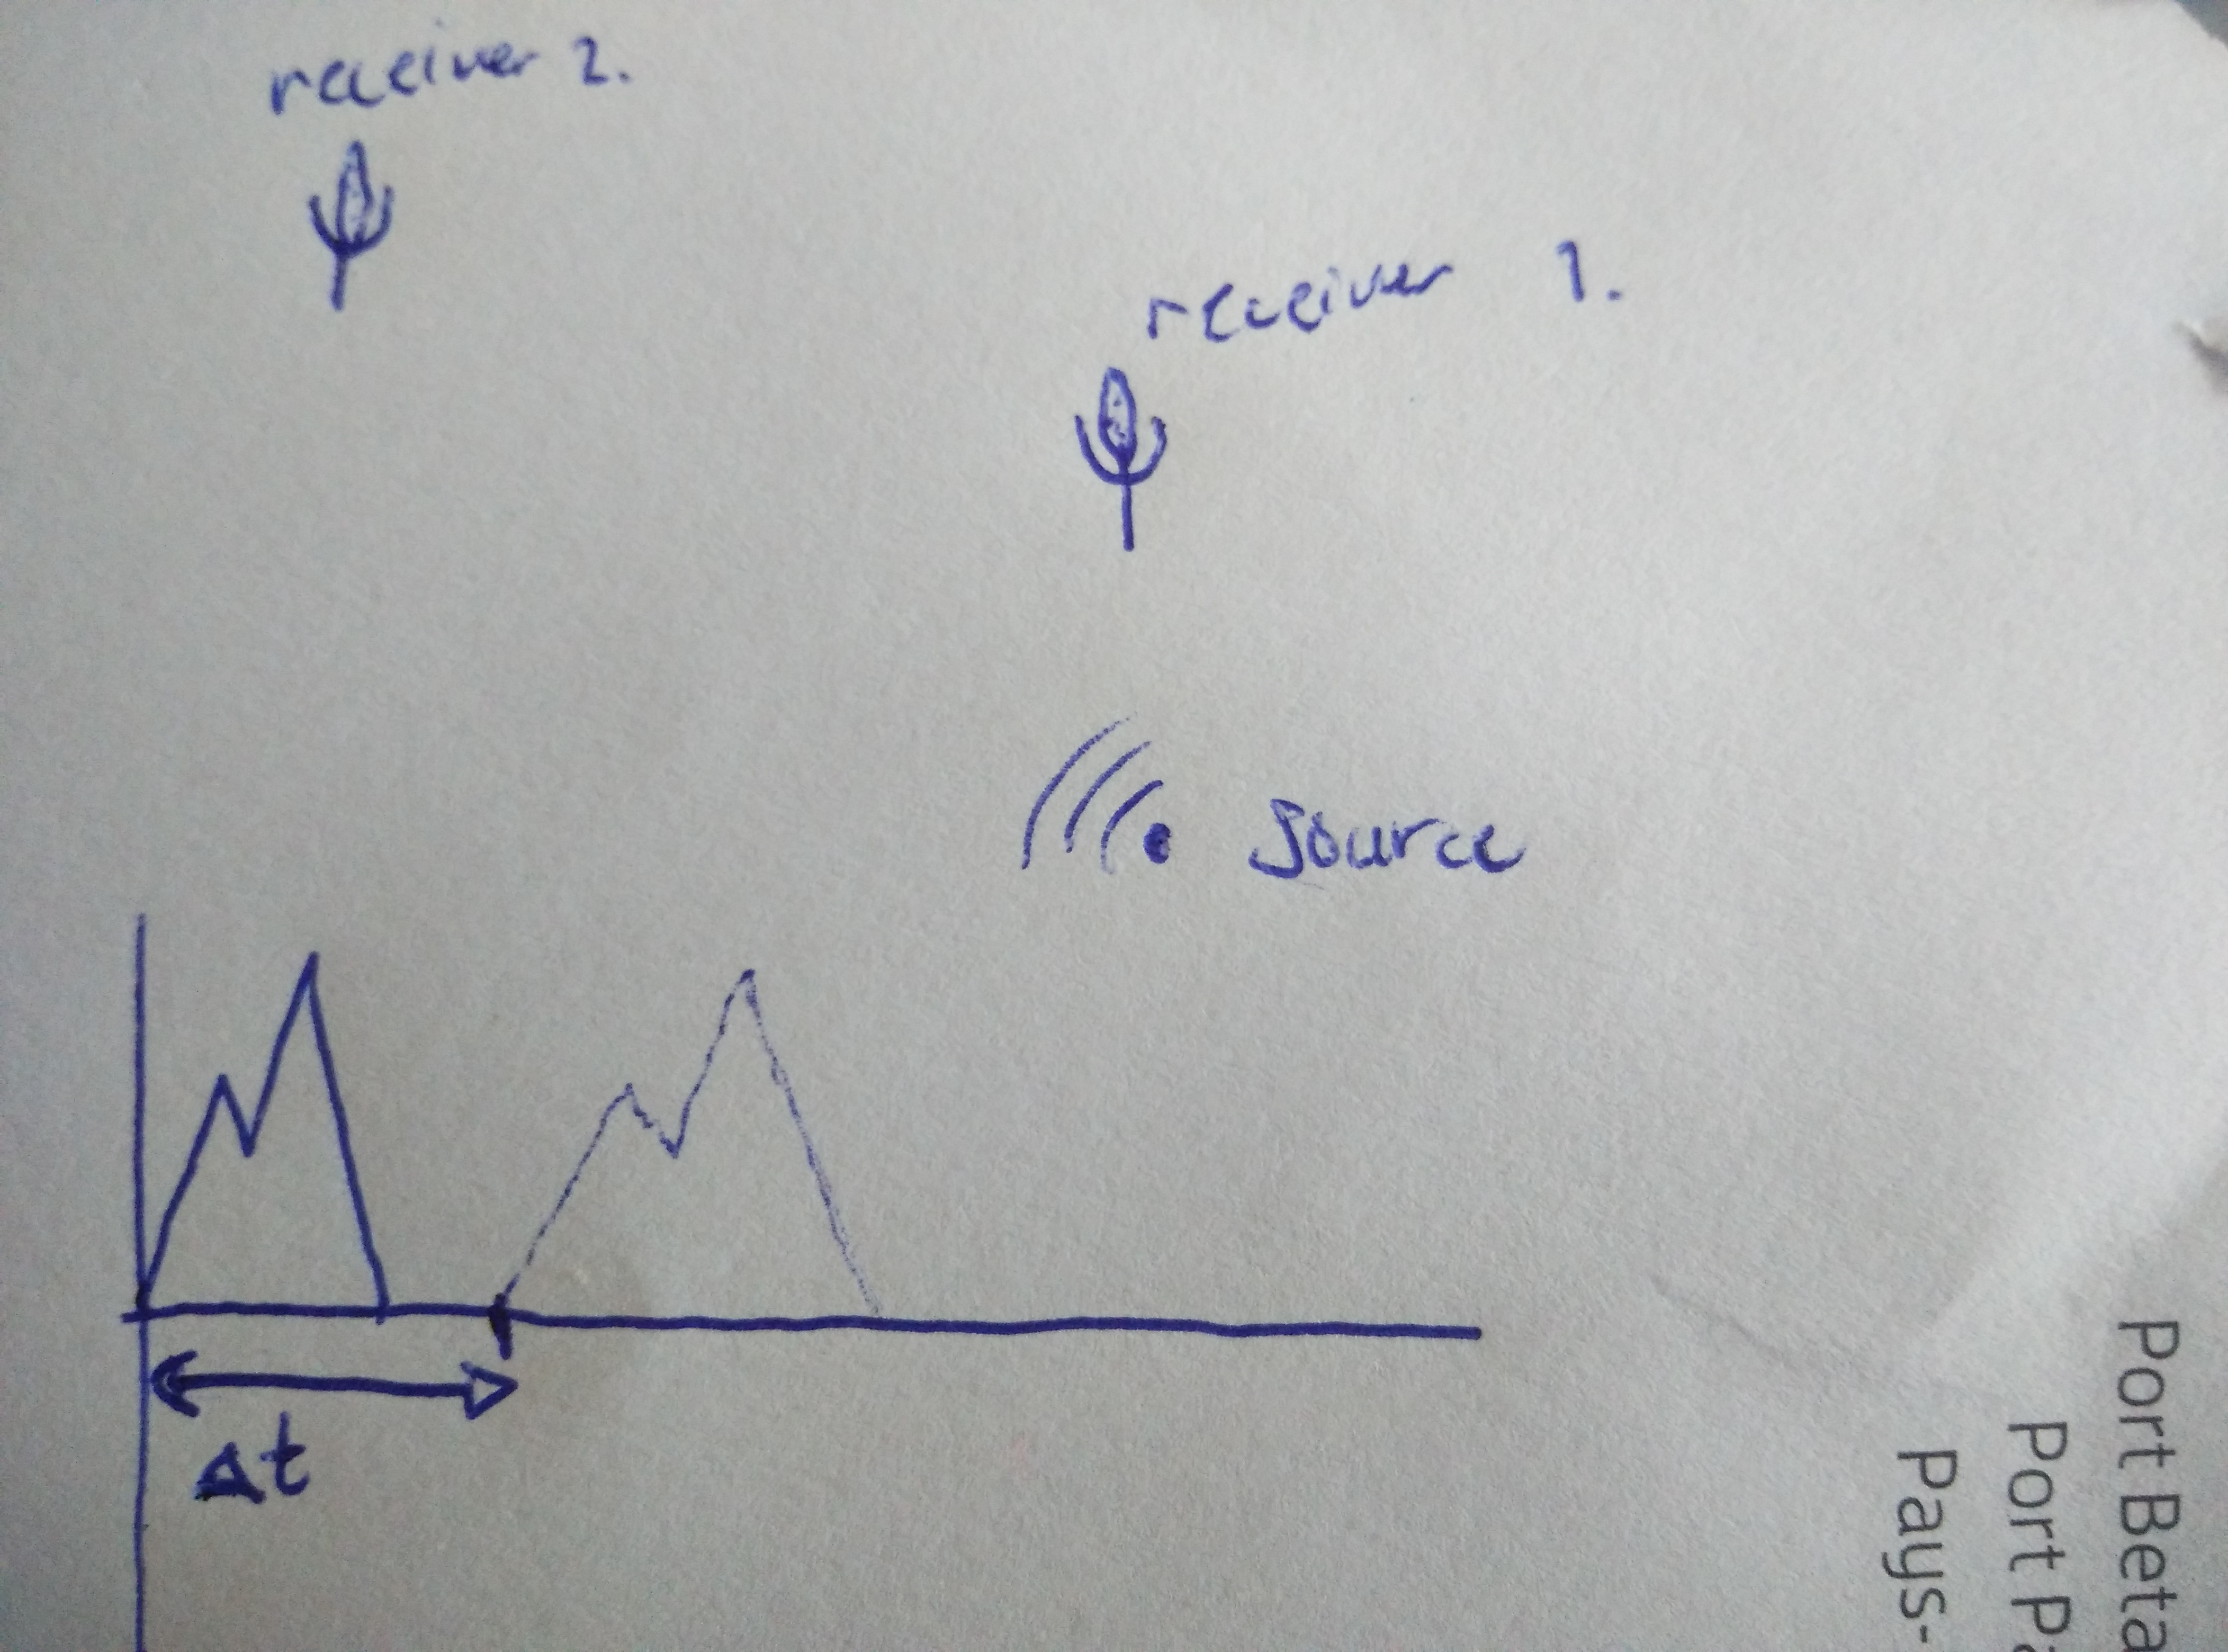 receiver 2.
receiver 1.
source
Δt
Port Beta
Port Pa
Pays-